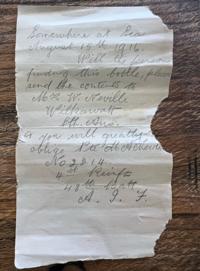 Somewhere at Sea
August 15th 1916.
Will the person
finding this bottle, please
send the contents to
Mrs W. Neville
Wilkawatt
Sth. Aus.
& you will greatly
oblige Pte
No 2814.
4th Rinfs
48th Batt.
A. I. F.